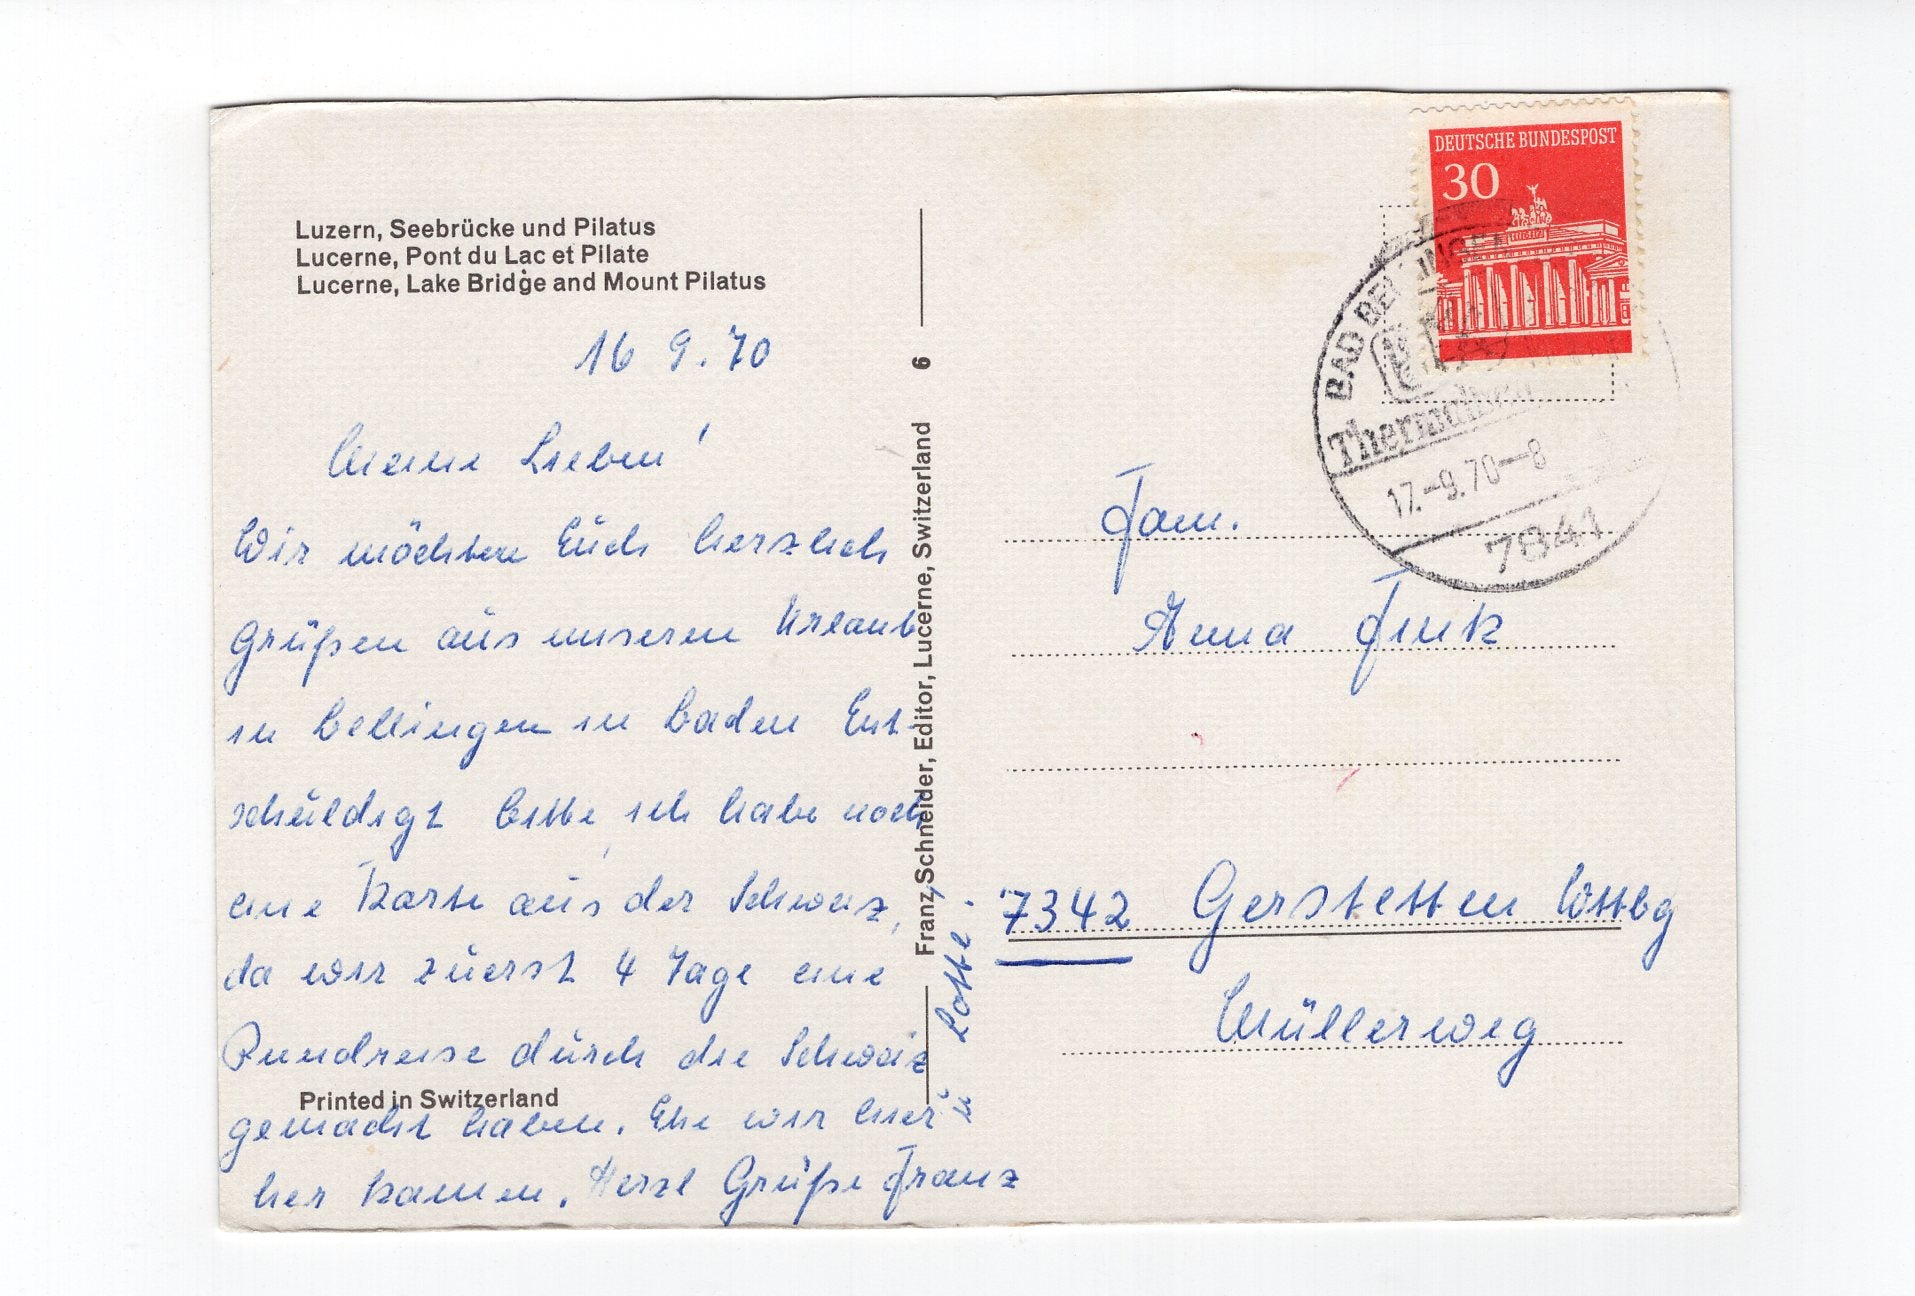 Luzern, Seebrücke und Pilatus
Lucerne, Pont du Lac et Pilate
Lucerne, Lake Bridge and Mount Pilatus
16 9.70
Meine Lieben!
Wir möchten Euch herzlich
Grüßen aus unseren Urlaub
in Bellingen in Baden Ent-
schuldigt bitte, ich habe noch
eine Karte aus der Schweiz,
da wir zuerst 4 Tage eine
Rundreise durch die Schweiz
gemacht haben. Ehe wir hier
her kamen. Herzl Grüße Franz
u Lotte.
Printed in Switzerland
Franz Schneider, Editor, Lucerne, Switzerland 6
DEUTSCHE BUNDESPOST
30
BAD BELLINGEN
17.-9.70-8
7841
Fam.
Anna Fink
7342 Gerstetten Wttbg
Müllerweg